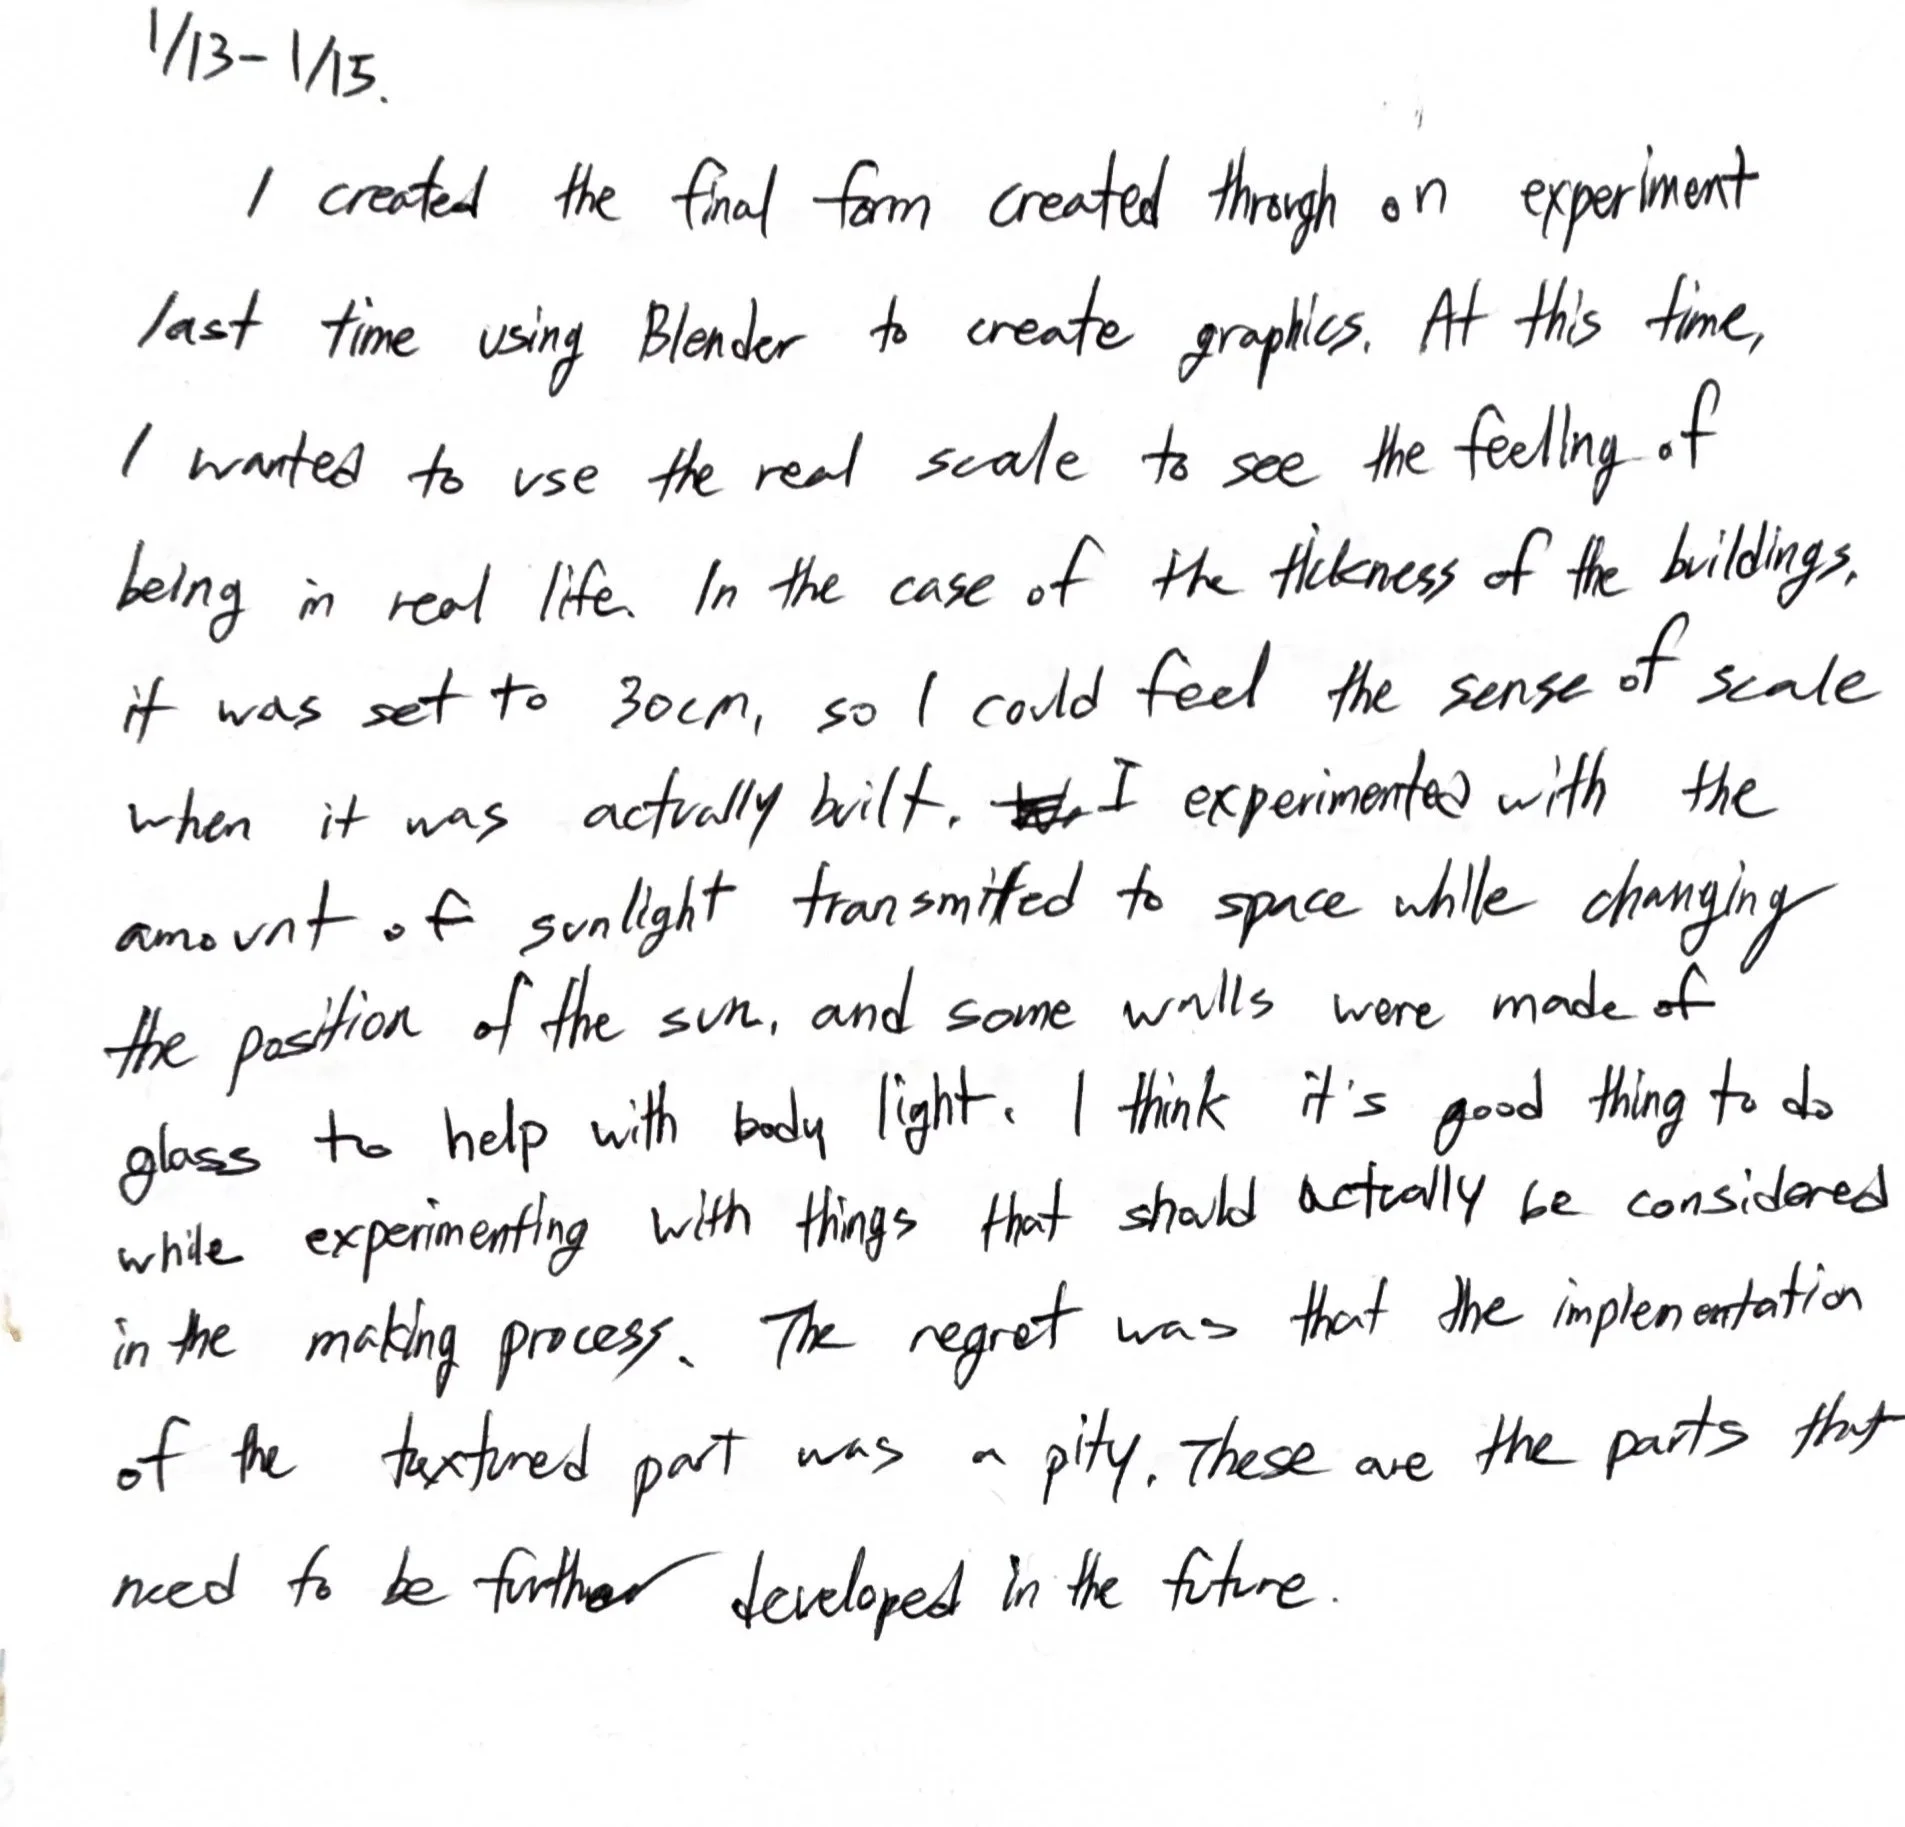 1/13 - 1/15.
I created the final form created through on experiment
last time using Blender to create graphics. At this time,
I wanted to use the real scale to see the feeling of
being in real life. In the case of the tickness of the buildings,
it was set to 30cm, so I could feel the sense of scale
when it was actually built. I experimented with the
amount of sunlight transmitted to space while changing
the position of the sun, and some walls were made of
glass to help with body light. I think it's good thing to do
while experimenting with things that should actually be considered
in the making process. The regret was that the implementation
of the textured part was a pity. These are the parts that
need to be further developed in the future.